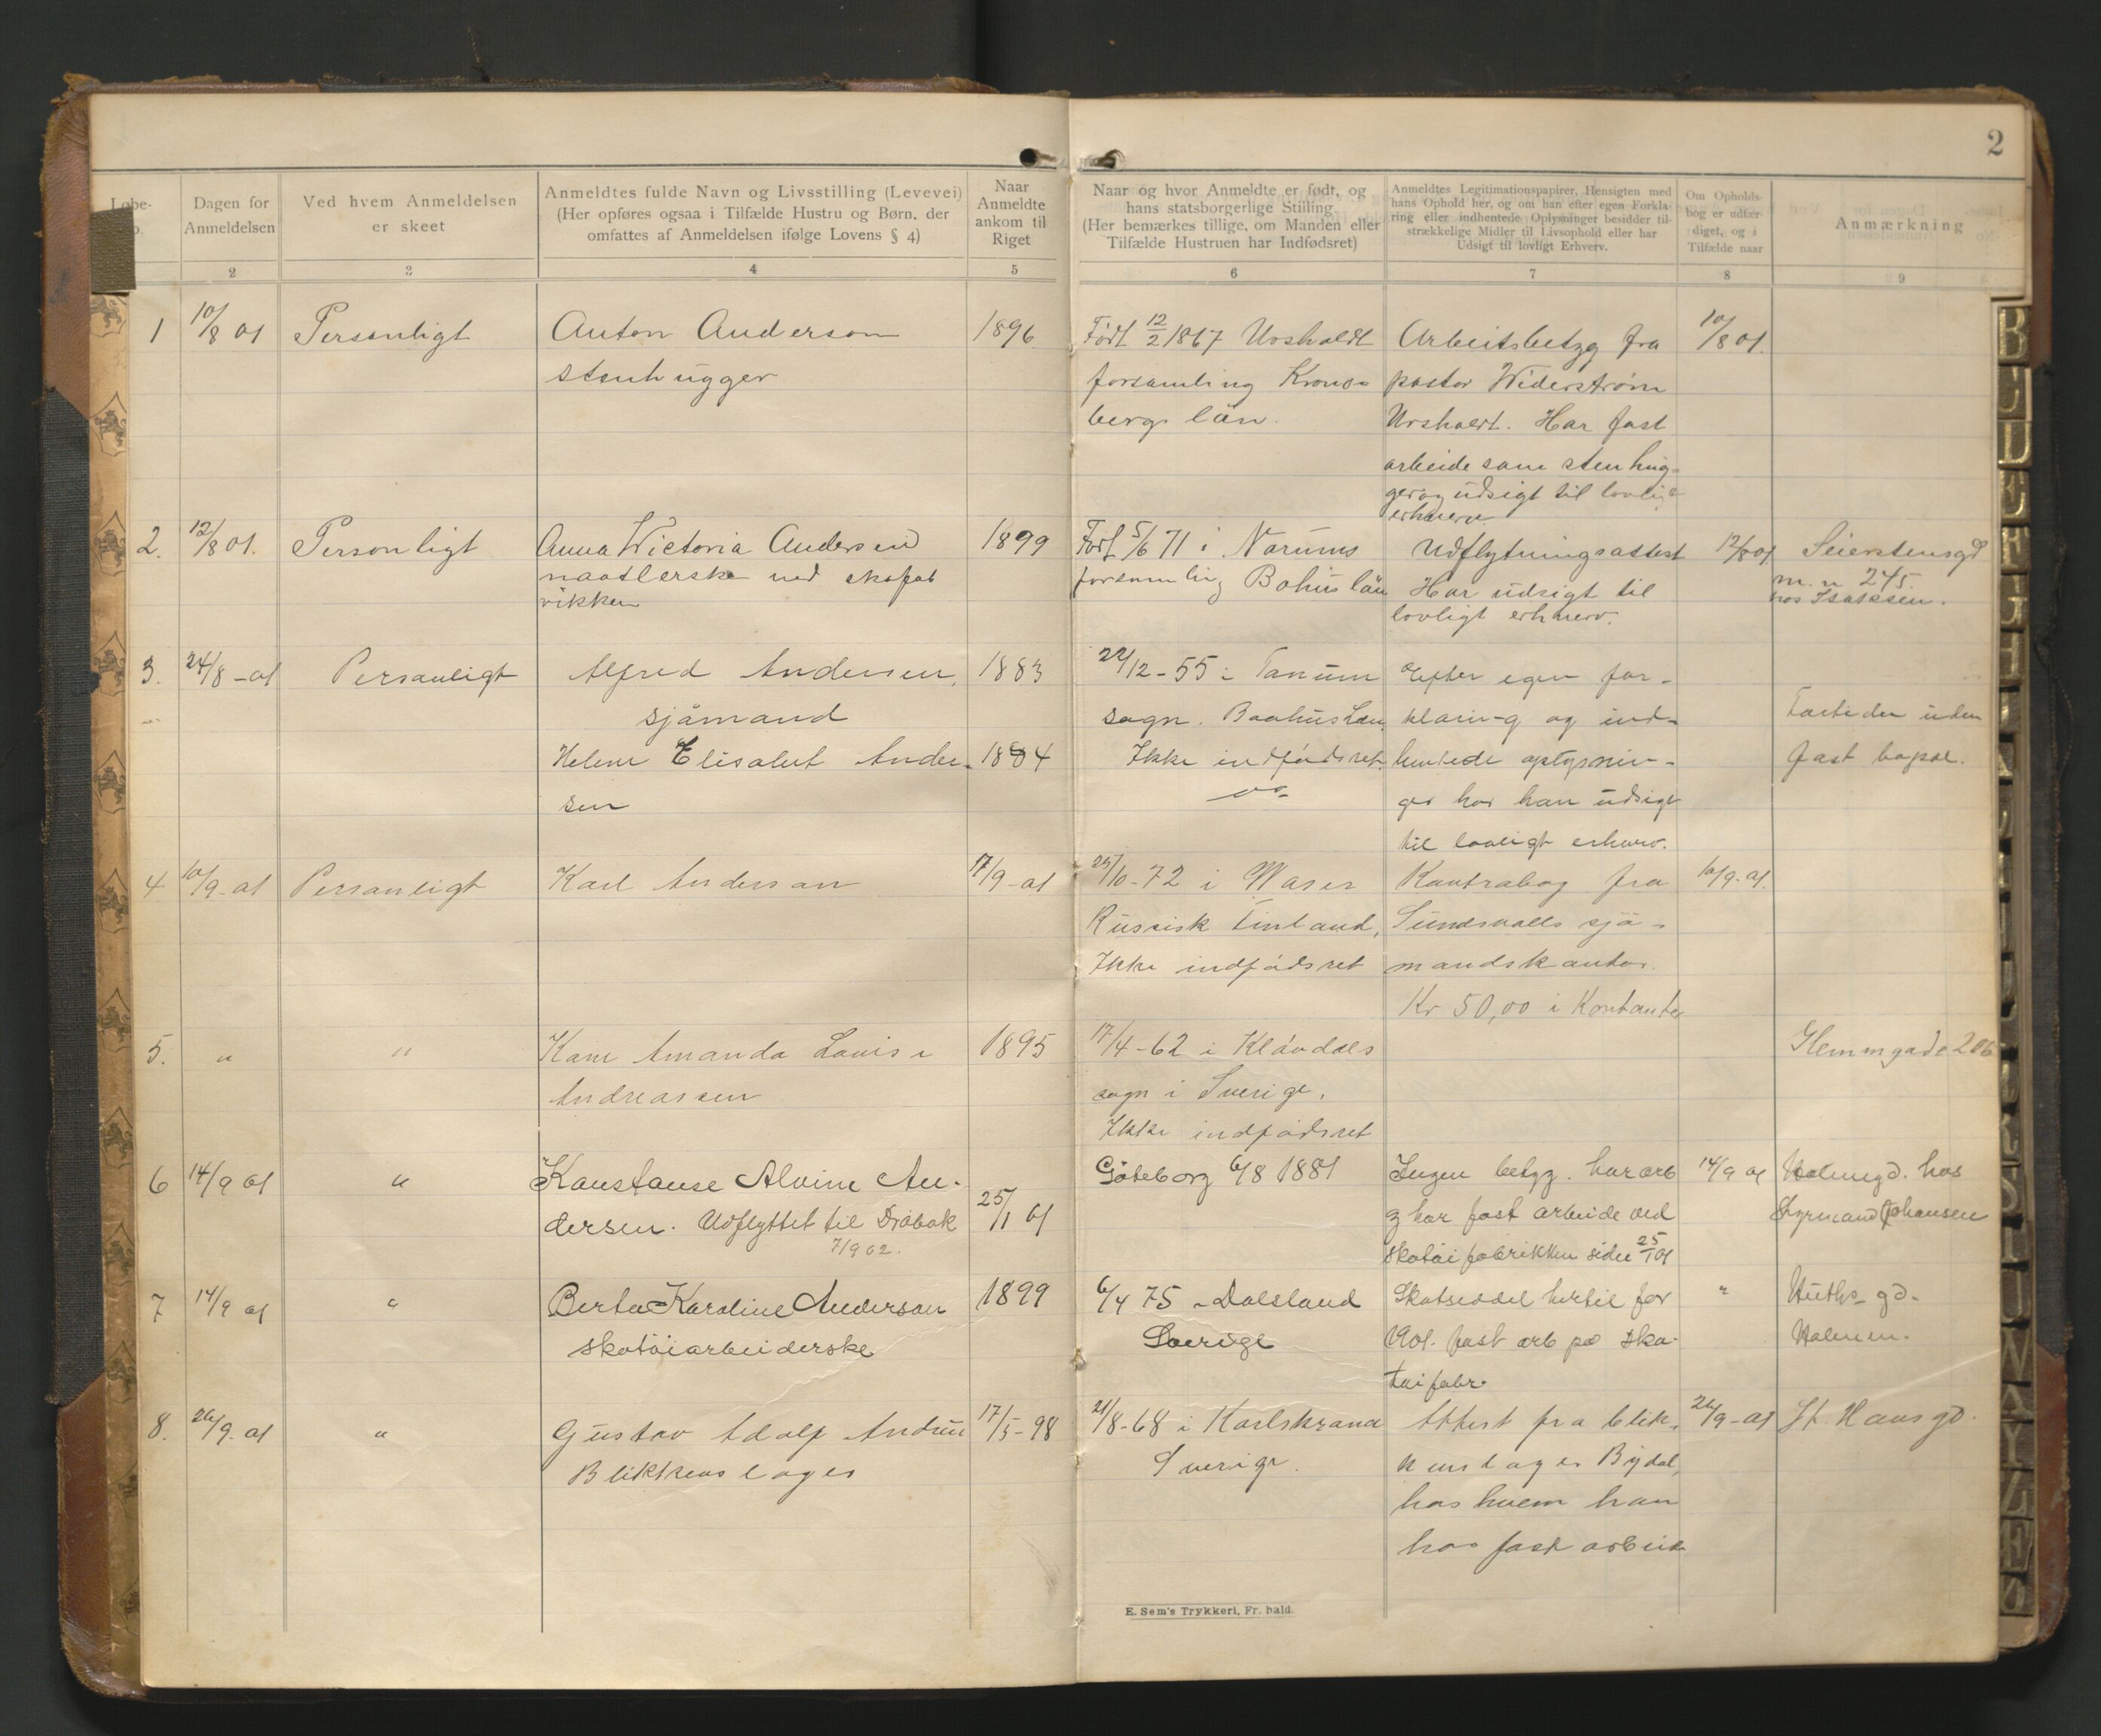 2
Løbe-
Dagen for
Anmeldelsen
Ved hvem Anmeldelsen
er skeet
Anmeldtes fulde Navn og Livsstilling (Levevei)
(Her opføres ogsaa i Tilfælde Hustru og Børn, der
omfattes af Anmeldelsen ifølge Lovens § 4)
Naar
Anmeldte
ankom til
Riget
Naar og hvor Anmeldte er født, og
hans statsborgerlige Stiiling
(Her bemærkes tillige, om Manden eller
Tilfælde Hustruen har Indfødsret)
Anmeldtes Legitimationspapirer, Hensigten med
hans Ophold her, og om han efter egen Forkla-
ring eller indhentede Oplysninger besidder til-
strækkelige Midler til Livsophold eller har
Udsigt til lovligt Erhverv.
Om Opholds-
bog er udfær-
diget, og i
Tilfælde naar
Anmærkning
2 3 4 5 6 7 8 9
1 10/8 01 Personligt Anton Anderson 1896 Født 12/2 1867 Urshuldt Arbeitsbetyg fra 10/8 01.
stenhugger forsamling Krono- pastor Widerstrøm
bergs län. Urshuldt. Har fast
arbeide som stenhug-
ger og udsigt til lovlig
erhverv
2. 12/8 01. Personligt Anna Wictoria Andersen 1899 Født 5/6 71 i Norums Udflytningsattest 12/8 01 Seierstensgd
naadlerske ved skofab forsamling Bohuslän Har udsigt til m. n 245.
rikken lovligt erhverv. hos Isaksen.
3. 24/8-01 Personligt Alfred Andersen, 1883 22/12-55 i Tanum Efter egen for-
sjømand sogn. Baahuslan, klaring og ind- Tortiden uden
Helene Elisabet Ander- 1884 Ikke indfødsret. hentede oplysnin- fast bopæl.
sen ger har han udsigt
til lovligt erhverv.
4 10/9-01 Personligt Karl Anderson 17/9-01 /10-72 i Russisk Finland, Kontrabog fra 10/9-01.
Sundsvalls sjø-
Ikke indfødsret mandskontor.
Kr 50,00 i Kontanter
5. " " Kone Amanda Lovise 1895 17/4-62 i Kløvdals Glemmgade 206
Andreassen sogn i Sverige.
Ikke indfødsret
6 14/9 01 " Konstanse Alvine An- 25/1 01 Göteborg 6/8 1881 Ingen betyg. har arb 14/9 01 Holmengd. hos
dersen. Udflyttet til Drøbak og har fast arbeide ved Styrmand Johansen
7/9 02. skotøifabrikken siden 25/1 01
7 14/9 01 " Berta Karoline Anderson 1899 6/4 75 - Dalsland Skatseddel hertil for " Huths-gd.
skotøiarbeiderske Sverige 1901. fast arb paa sko- Holmen.
tøifabr.
8. 26/9. 01 " Gustav Adolf 17/5-98 21/8-68 i Karlskrona Attest fra blik- 26/9-01 St. Hansgd.
Blikkenslager Sverige. kenslager Bydal,
hos hvem han
har fast arbeide
E. Sem's Trykkeri, Fr. hald.